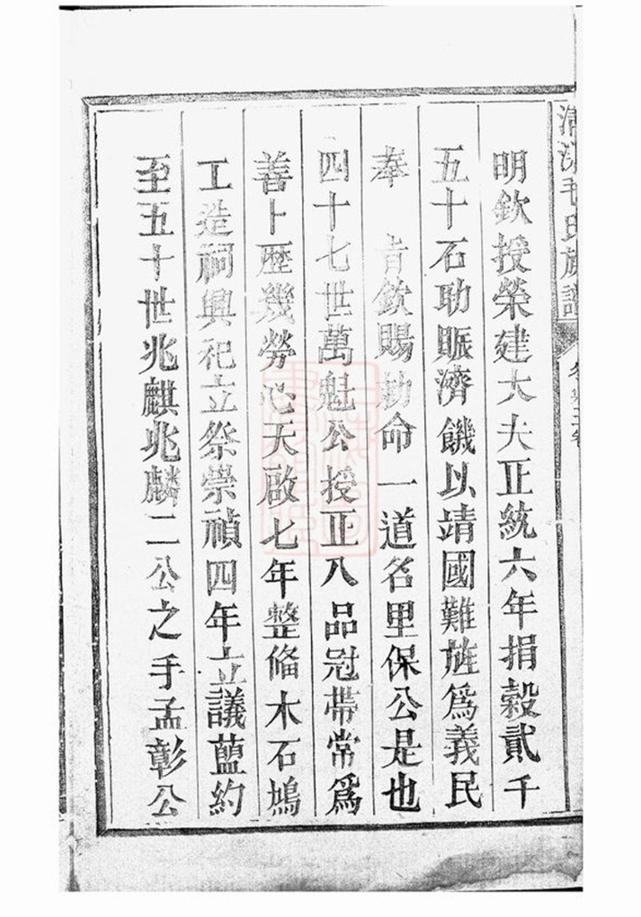 清漾毛氏族譜
明欽授榮建大夫正統六年捐榖貳千
五十石助賑濟饑以靖國難旌爲義民
奉　旨欽賜勅命一道名里保公是也
四十七世萬魁公授正八品冠帶常爲
善卜歷幾勞心天啟七年整俻木石鳩
工造祠興祀立祭崇禎四年立議藍約
至五十世兆麒兆麟二公之手孟彰公